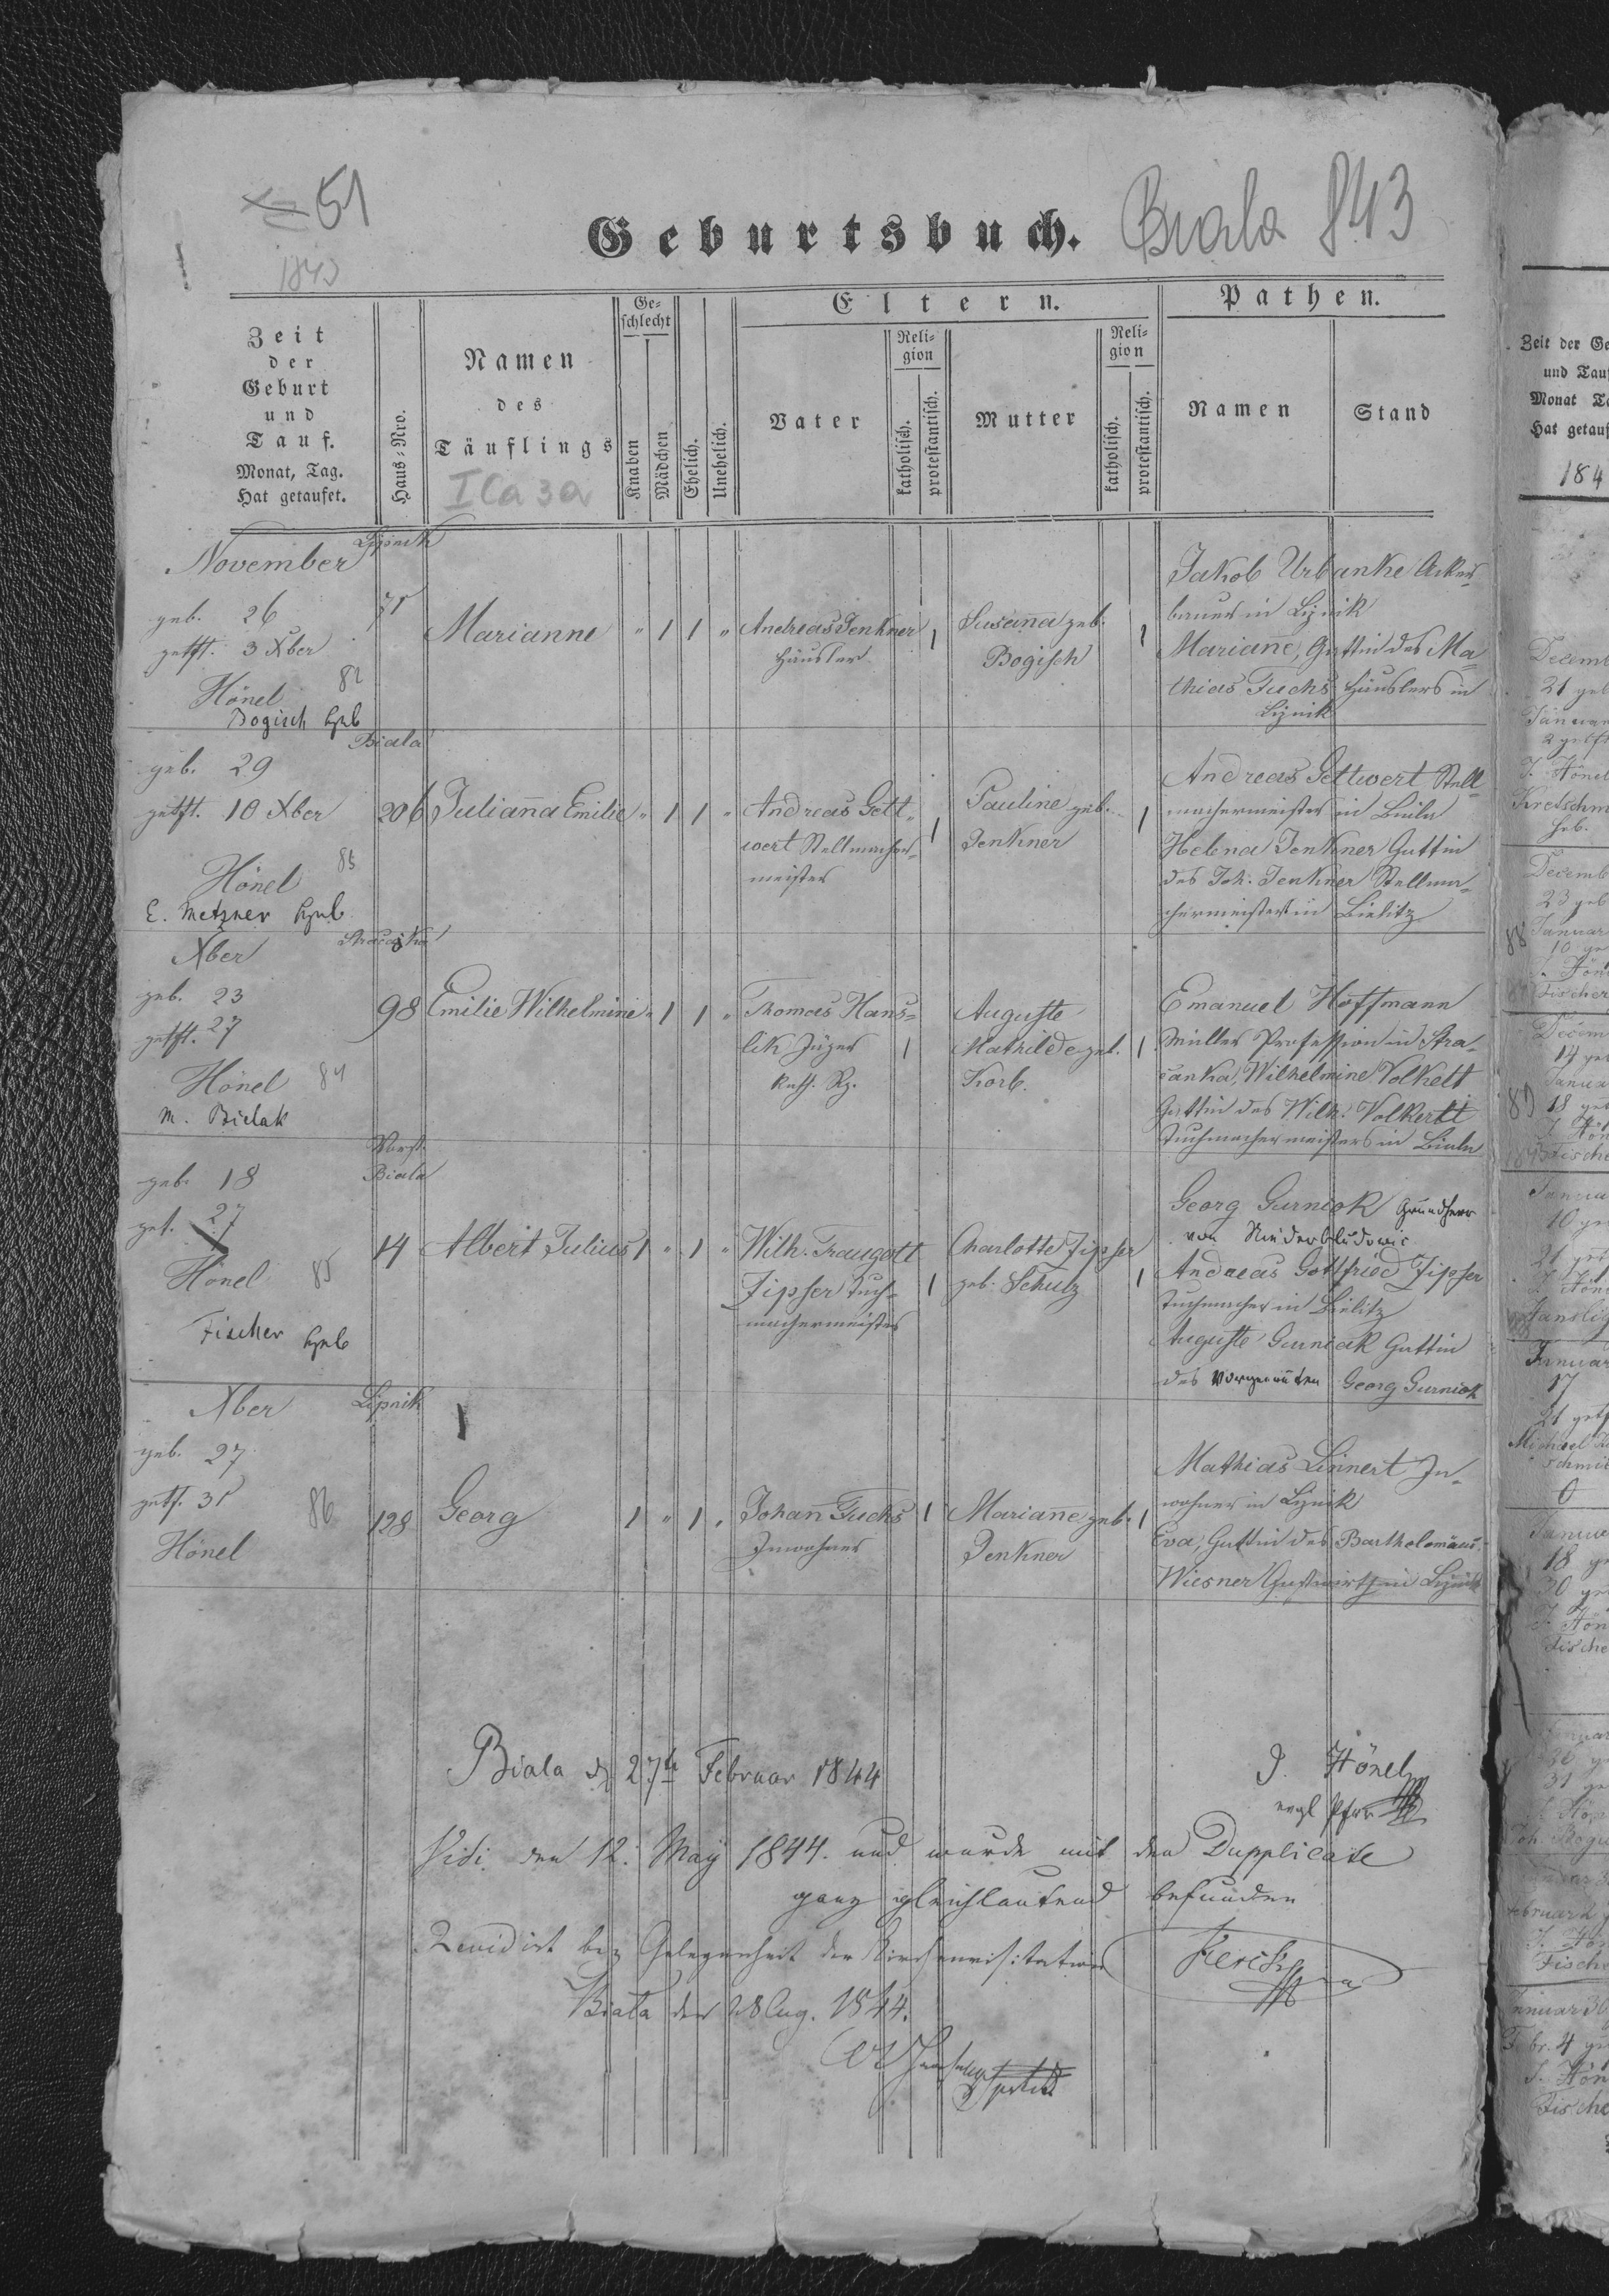 51
1843
Geburtsbuch.
Biala 843
Zeit
der
Geburt
und
Tauf.
Monat, Tag.
Hat getaufet.
Haus-Nro.
Namen
des
Täuflings
I Ca 3a
Ge-
schlecht
Knaben
Mädchen
Ehelich.
Unehelich.
Eltern.
Vater
Reli-
gion
katholisch.
protestantisch.
Mutter
Reli-
gion
katholisch.
protestantisch.
Pathen.
Namen
Stand
November
Lipnik
geb. 26
getft. 3 Xber
Hönel 82
Bogisch Heb
71
Marianne
" 1 1 "
Andreas Jenkner
Häusler
1
Susanna geb.
Bogisch
1
Jakob Urbanke Acker-
bauer in Lipnik
Marianne, Gattin des Ma-
thias Fuchs Häuslers in
Lipnik
Biala
geb. 29
getft. 10 Xber
Hönel 83
E. Metzner Heb
206
Julianna Emilie
" 1 1 "
Andreas Gett-
wert Stellmacher-
meister
1
Pauline geb.
Jenkner
1
Andreas Gettwert Stell-
machermeister in Biala
Helena Jenkner Gattin
des Joh. Jenkner Stellma-
chermeisters in Bielitz
Xber
geb. 23
getft. 27
Hönel 84
M. Bielak
98
Emilie Wilhelmine
" 1 1 "
Thomas Hans-
lik Jäger
1
Auguste
Mathilde geb.
Korb.
1
Emanuel Hoffmann
Müller Profession in Stra-
canka, Wilhelmine Volkelt
Gattin des Wilh. Volkelt
Tuchmachermeisters in Biala
Vorst.
Biala
geb. 18
get. 27
Hönel 85
Fischer Heb
14
Albert Julius
1 " 1 "
Wilh. Traugott
Zipser Tuch-
machermeister
1
Charlotte Zipser
geb. Schulz
1
Georg Gurniok Grundherr
von Niederbludowic
Andreas Gottfried Zipser
Tuchmacher in Bielitz
Auguste Gurniak Gattin
des Vorgenannten Georg Gurniok
Xber
Lipnik
geb. 27
getf. 31
Hönel
86
128
Georg
1 " 1 "
Johann Fuchs
Inwohner
1
Marianne geb.
Jenkner
1
Mathias Linnert In-
wohner in Lipnik
Eva, Gattin des Barthelomäus
Wiesner Gastwirth in Lipnik
Biala d 27te Februar 1844
J. Hönel
evgl Pfrr
Vidi den 12. May 1844. und wurde mit den Dupplicate
ganz gleichlautend befunden
Revidirt bey Gelegenheit der Kirchenvisitation
Biala den 28 Aug. 1844.
Zeit der Ge
und Tauf
Monat Ta
Hat getauf
184